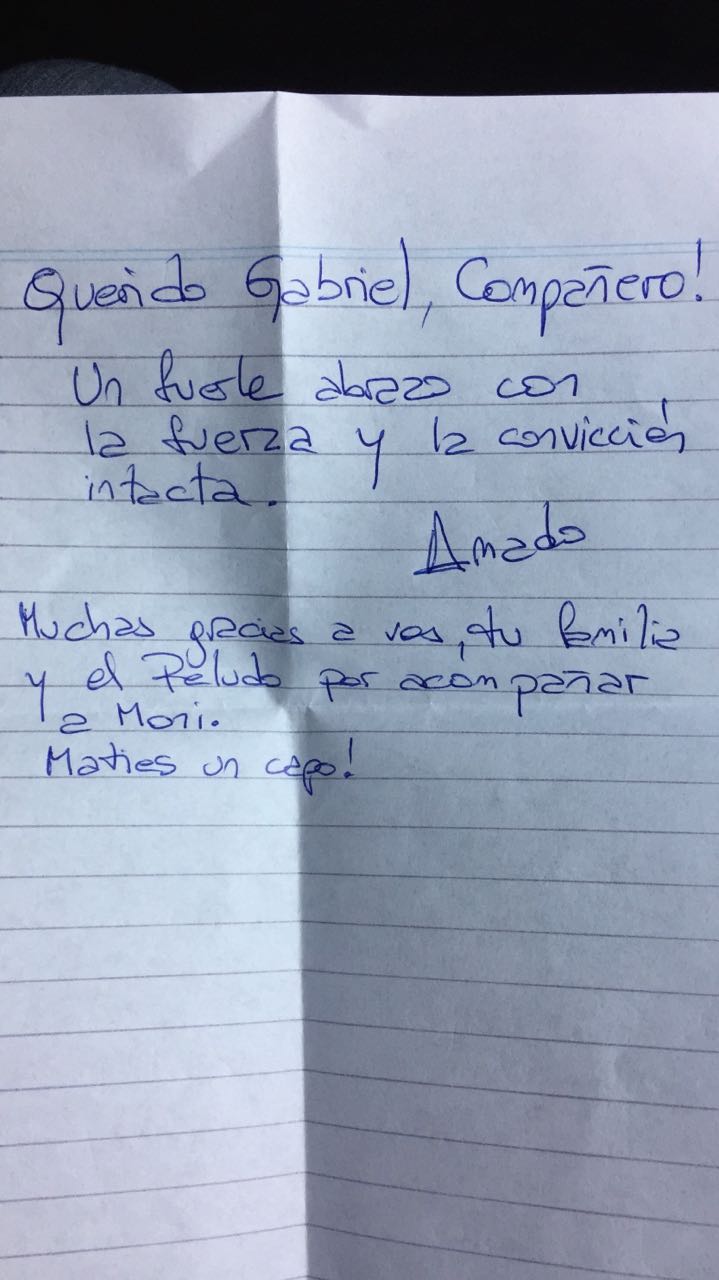 Querido Gabriel, Compañero!
Un fuerte abrazo con
la fuerza y la convicción
intacta.
Amado
Muchas gracias a vos, tu familia
y el Peludo por acompañar
a Moni.
Matías un capo!